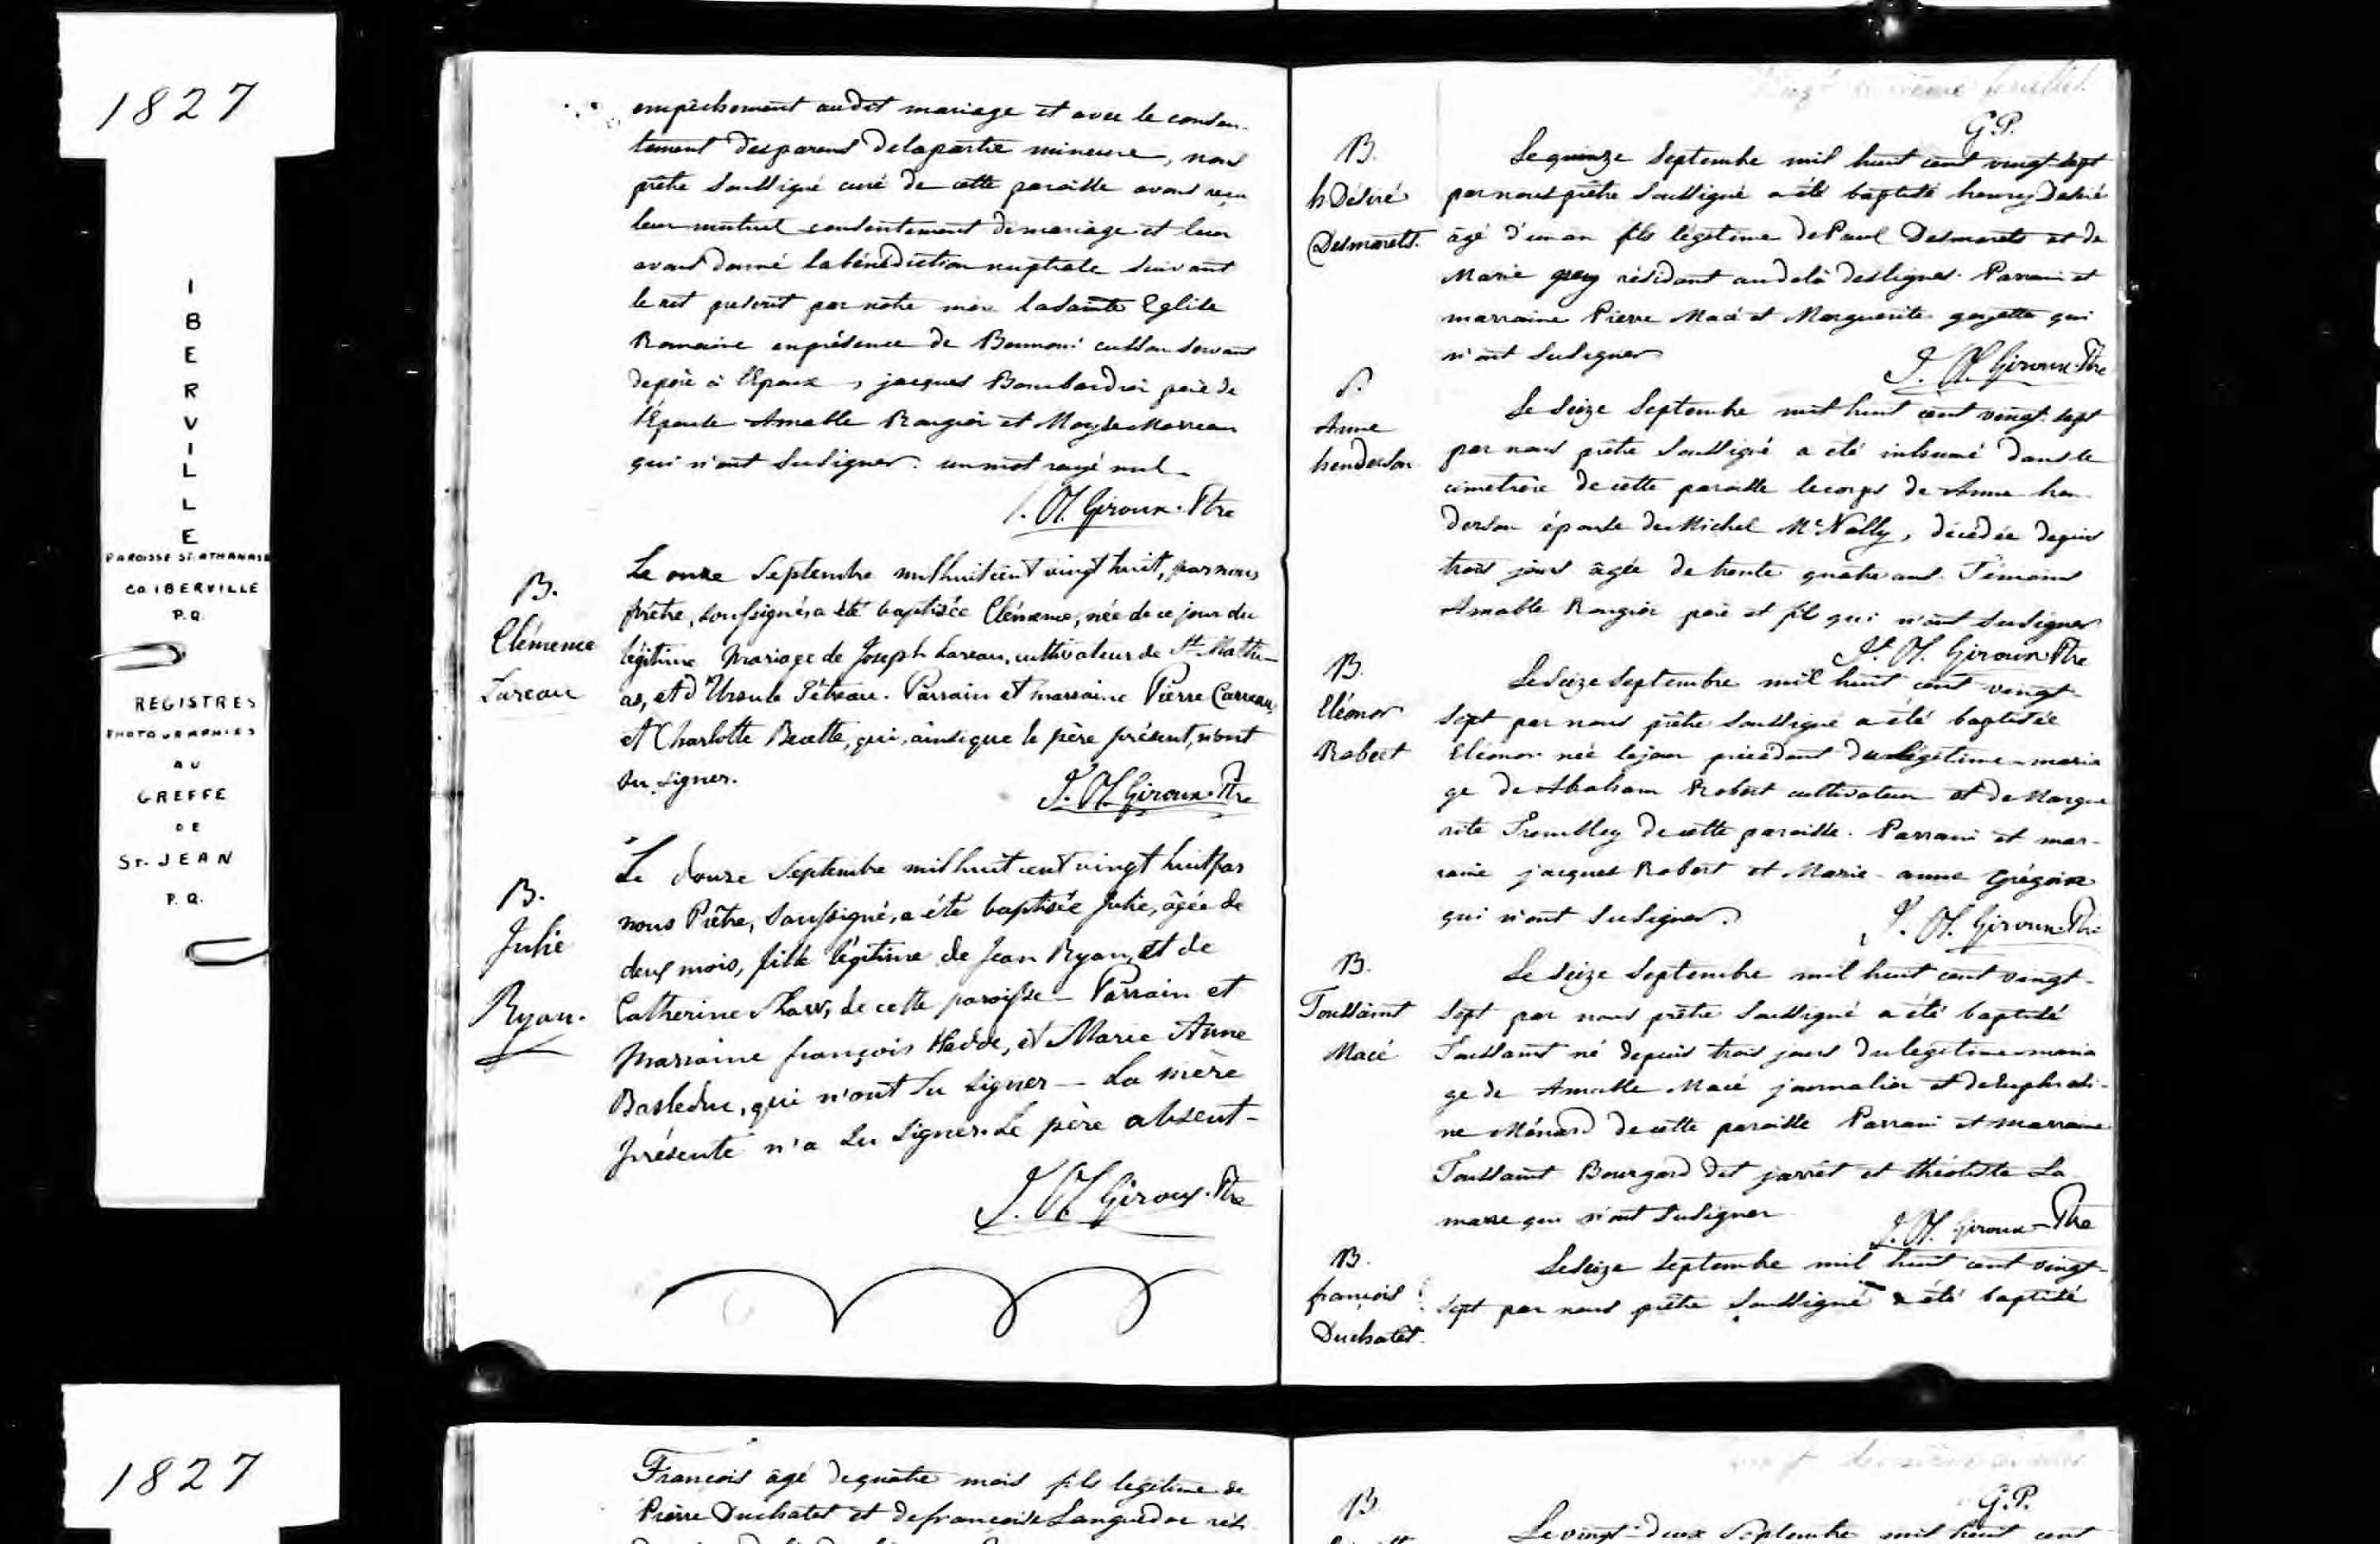 1827
I
B
E
R
V
I
L
L
E
PAROISSE ST. ATHANASE
CO. IBERVILLE
P.Q.
REGISTRES
PHOTOGRAPHIES
AU
GREFFE
DE
ST. JEAN
P.Q.
empêchement audit mariage et avec le consen-
tement des parens de la partie mineure, nous
prêtre soussigné curé de cette paroisse avons reçu
leur mutuel consentement de mariage et leur
avons donné la bénédiction nuptiale suivant
le rit prescrit par notre mère la sainte Eglise
Romaine en présence de servant
de père à l'Epoux, jacques Bombardier père de
l'Epouse Amable Rougier et Moyse
qui n'ont su signer. un mot rayé nul
J. O. Giroux. Ptre
B.
Clémence
Lareau
Le onze Septembre mil huit cent vingt huit, par nous
prêtre, soussigné, a été baptisée Clémence, née de ce jour du
légitime Mariage de Joseph Lareau, cultivateur de St. Mathi-
as, et d'Ursule Pétreau. Parrain et marraine Pierre Carreau,
et Charlotte qui, ainsi que le père présent, n'ont
su signer.
J. O. Giroux. Ptre
B.
Julie
Ryan.
Le douze Septembre mil huit cent vingt huit par
nous Prêtre, Soussigné, a été baptisée Julie, âgée de
deux mois, fille légitime de Jean Ryan, et de
Catherine Shaw, de cette paroisse - Parrain et
Marraine françois et Marie Anne
Barleduc, qui n'ont su signer - La mère
présente n'a su signer. Le père absent-
J. O. Giroux. Ptre
G.P.
B.
h. Désiré
Desmarets.
Le quinze Septembre mil huit cent vingt sept
par nous prêtre soussigné a été baptisé henry Désiré
âgé d'un an fils légitime de Paul Desmarets et de
Marie résidant au delà des lignes. Parrain et
marraine Pierre Macé et Marguerite qui
n'ont su signer
J. O. Giroux. Ptre
S.
Anne
henderson
Le seize Septembre mil huit cent vingt sept
par nous prêtre soussigné a été inhumé dans le
cimetière de cette paroisse le corps de Anne hen-
derson épouse de Michel McNally, décédée depuis
trois jours âgée de trente quatre ans. Témoins
Amable Rougier père et fils qui n'ont su signer
J. O. Giroux Ptre
B.
Eléonor
Robert
Le seize Septembre mil huit cent vingt
sept par nous prêtre soussigné a été baptisée
Eléonor née le jour précédent du légitime maria
ge de Abraham Robert cultivateur et de Margue
rite Trembley de cette paroisse. Parrain et mar-
raine jacques Robert et Marie-anne Grégoire
qui n'ont su signer.
J. O. Giroux Ptre
B.
Toussaint
Macé
Le seize Septembre mil huit cent vingt-
sept par nous prêtre soussigné a été baptisé
Toussaint né depuis trois jours du légitime maria
ge de Amable Macé journalier et de Euphrosi-
ne Ménard de cette paroisse Parrain et marraine
Toussaint Bourgard dit jarret et théotiste La
marre qui n'ont su signer
J. O. Giroux - Ptre
B.
françois
Duchatel.
Le seize Septembre mil huit cent vingt-
sept par nous prêtre soussigné a été baptisé
1827
François âgé de quatre mois fils légitime de
Pierre Duchatel et de françoise Languedoc rési
G.P.
B.
Le vingt-deux Septembre mil huit cent